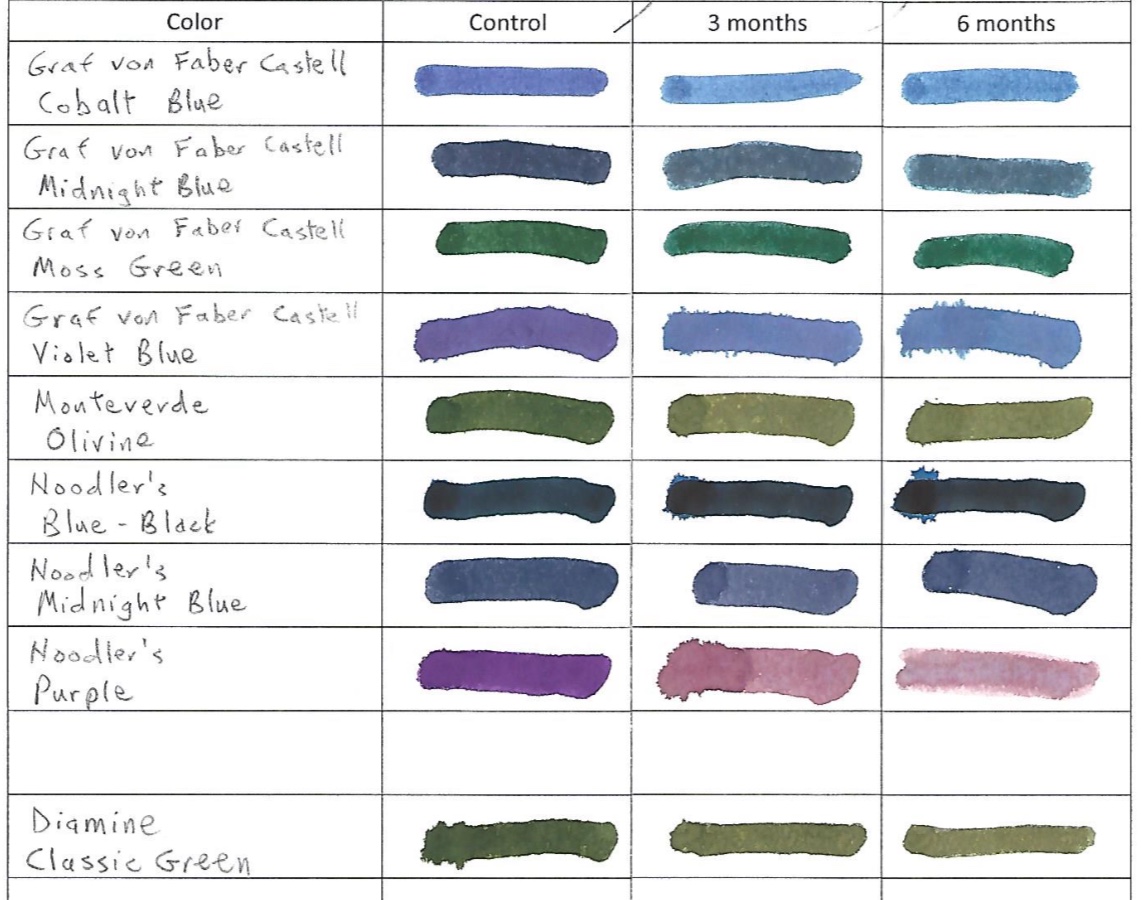 Color Control 3 months 6 months
Graf von Faber Castell
Cobalt Blue
Graf von Faber Castell
Midnight Blue
Graf von Faber Castell
Moss Green
Graf von Faber Castell
Violet Blue
Monteverde
Olivine
Noodler's
Blue-Black
Noodler's
Midnight Blue
Noodler's
Purple
Diamine
Classic Green